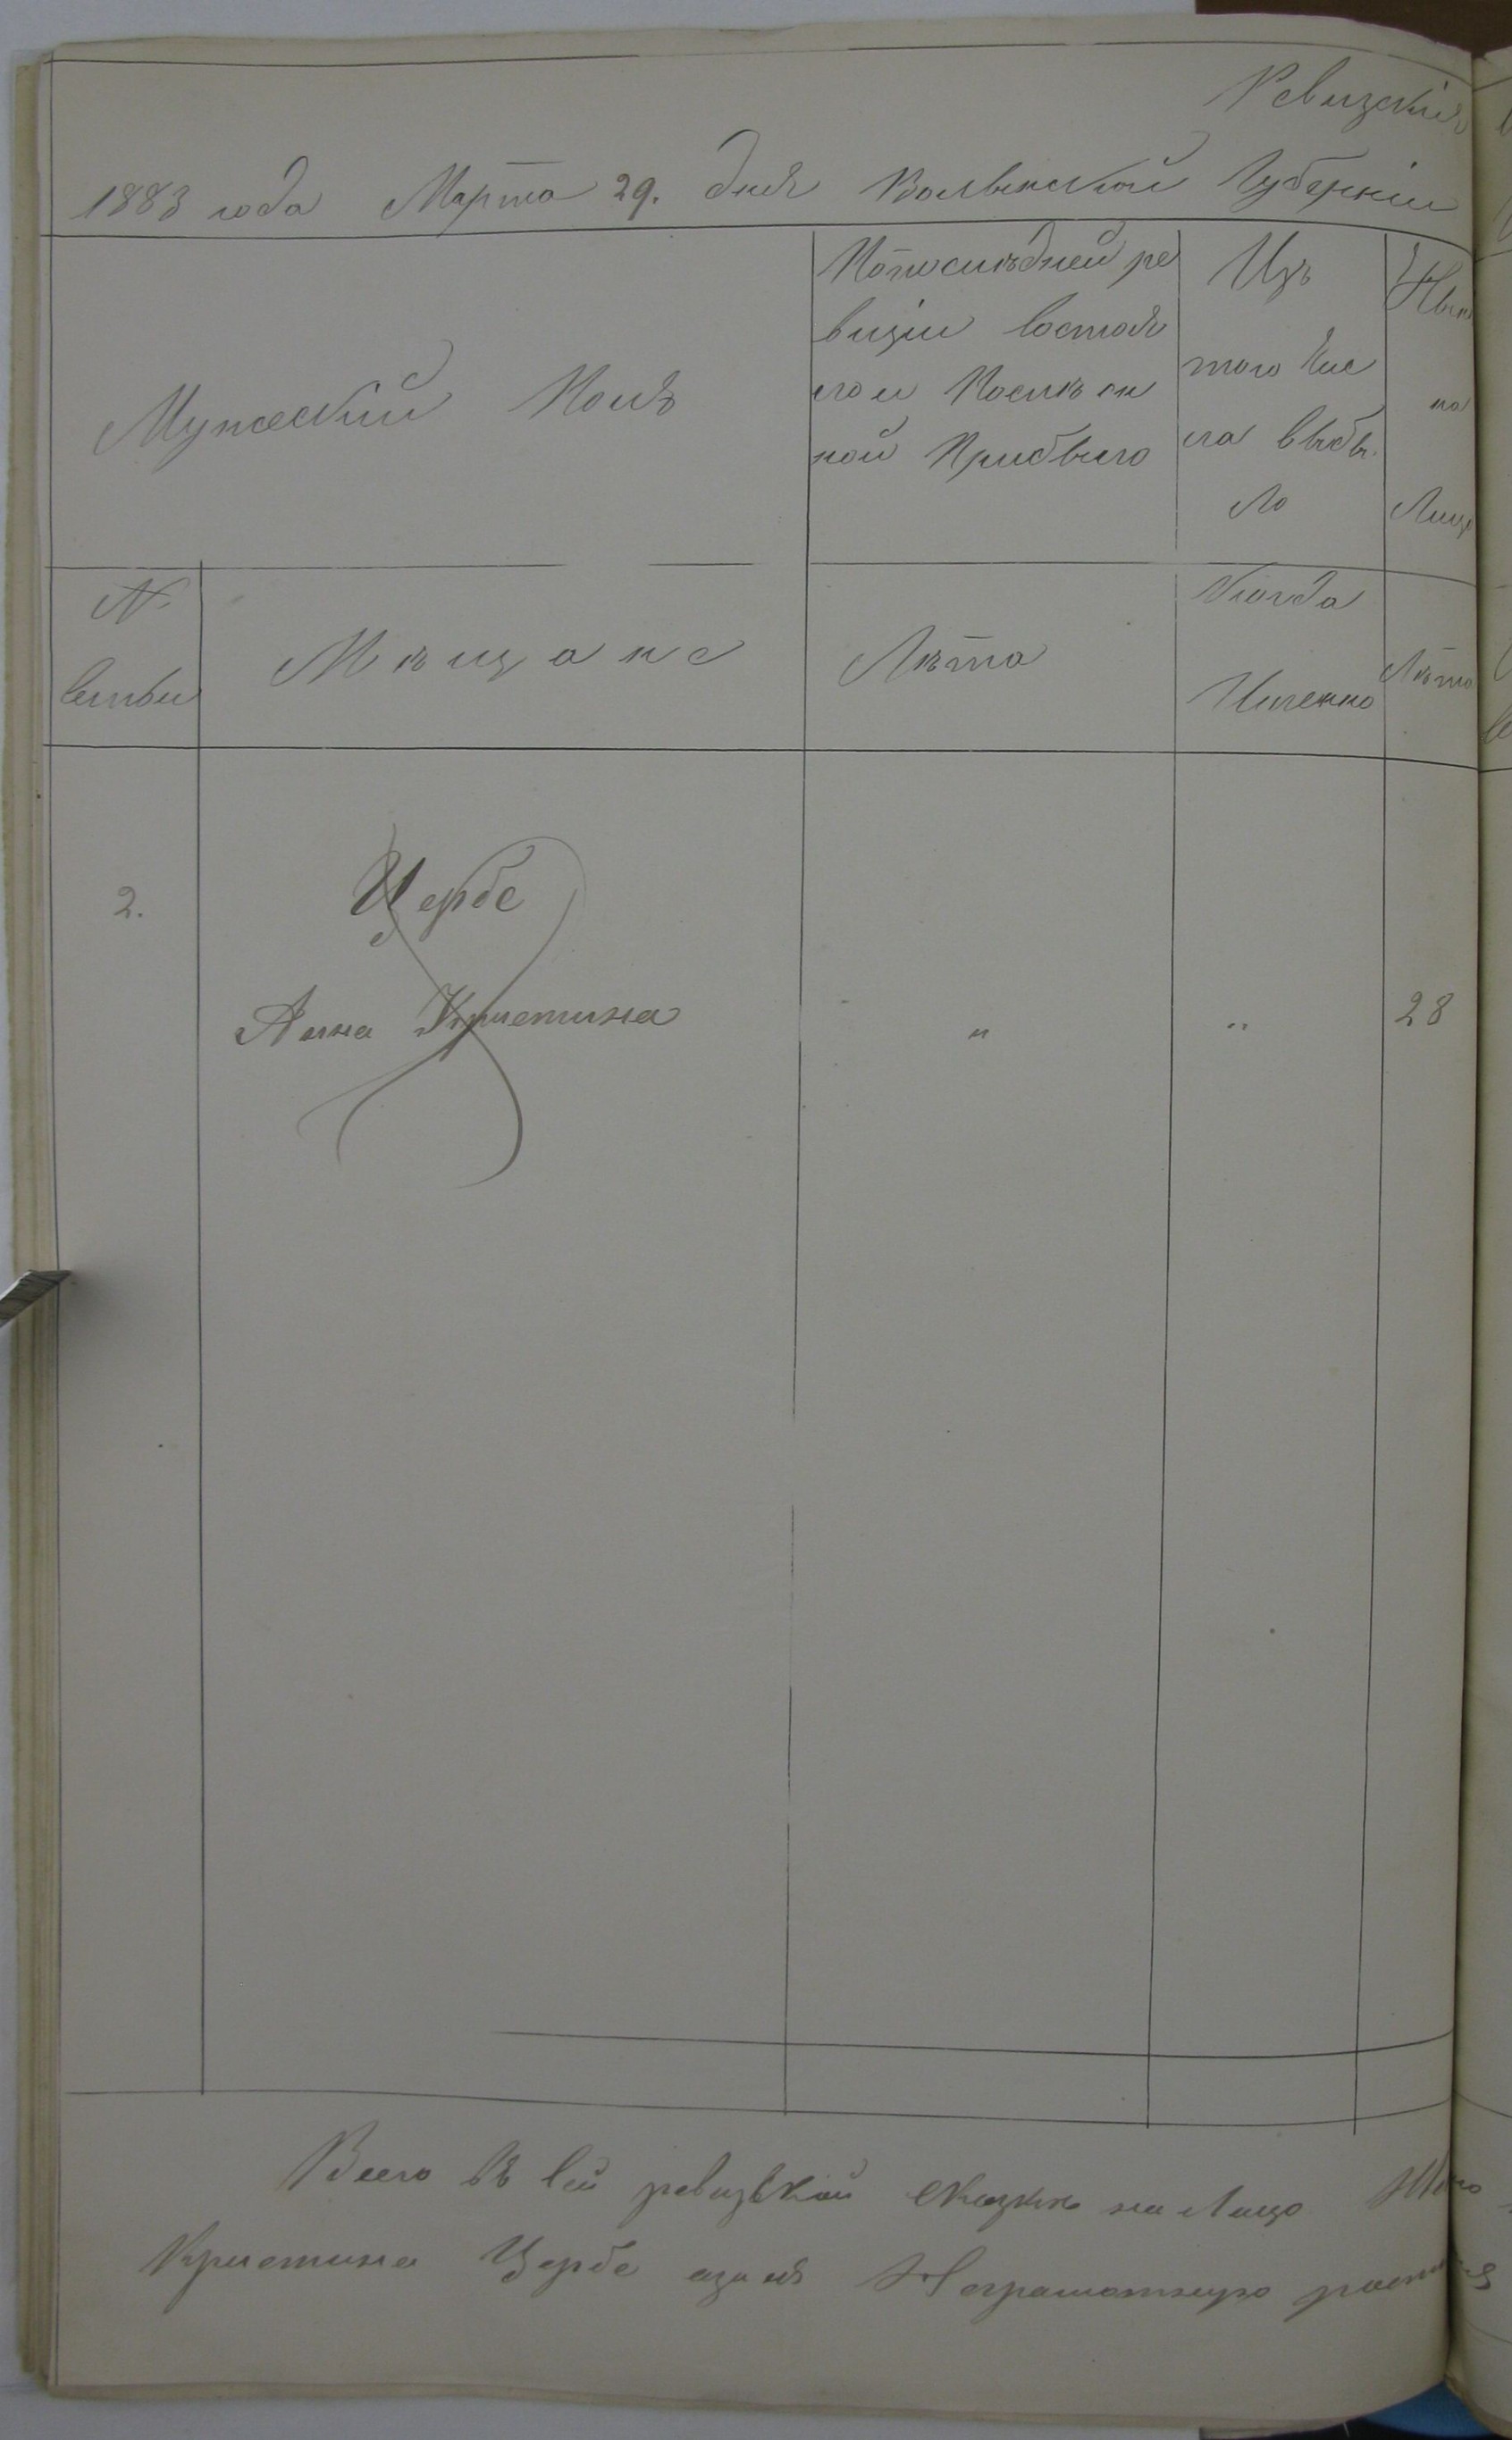 Ревизскія
1883 года Марта 29. дня Волынской Губерніи
Мужескій Полъ
Попослѣдней ре
визіи состоя
ло и Послѣ он
ной Прибыло
Изъ
того Чис
ла выбы
ло
Нын
на
Лицо
№
семьи
Мѣщане
Лѣта
Когда
Именно
Лѣта
2.
Цербе
Анна Кристина
"
"
28
Всего въ сей ревизской сказкѣ на Лицо
Кристина Цербе азанѣ Неграмотную